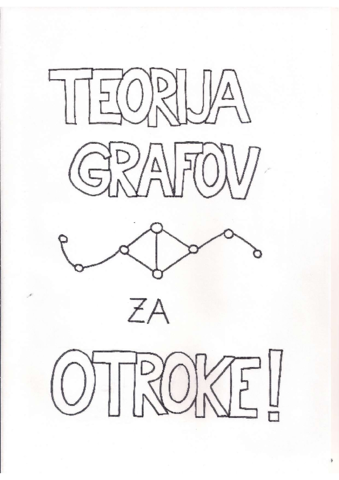 TEORIJA
GRAFOV
ZA
OTROKE!